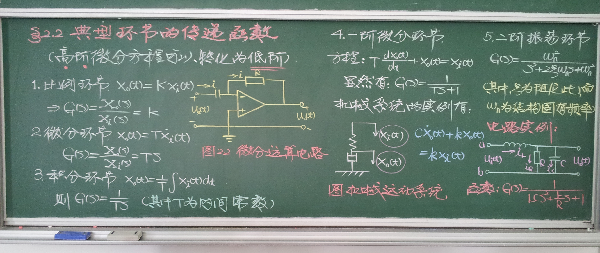 §2.2 典型环节的传递函数
(高阶微分方程可以转化为低阶)
1.比例环节 x₀(t)=Kxᵢ(t)
⇒G(s)=X₀(s)/Xᵢ(s)=K
2.微分环节 x₀(t)=Tẋᵢ(t)
G(s)=X₀(s)/Xᵢ(s)=TS
3.积分环节 x₀(t)=1/T∫xᵢ(t)dt
则G(s)=1/TS (其中T为时间常数)
i
R
C
u₀(t)
图2.2 微分运算电路
4.一阶微分环节
方程:T dx₀(t)/dt+x₀(t)=xᵢ(t)
显然有:G(s)=1/TS+1
机械系统的实例有:
xᵢ(t)
x₀(t)
cẋ₀(t)+kx₀(t)
=kxᵢ(t)
图 机械运动系统
5.二阶振荡环节
G(s)=ωn²/S²+2ξωnS+ωn²
(其中ξ为阻尼比,而
ωn为结构固有频率)
电路实例:
a
L
R
C
u₀(t)
b